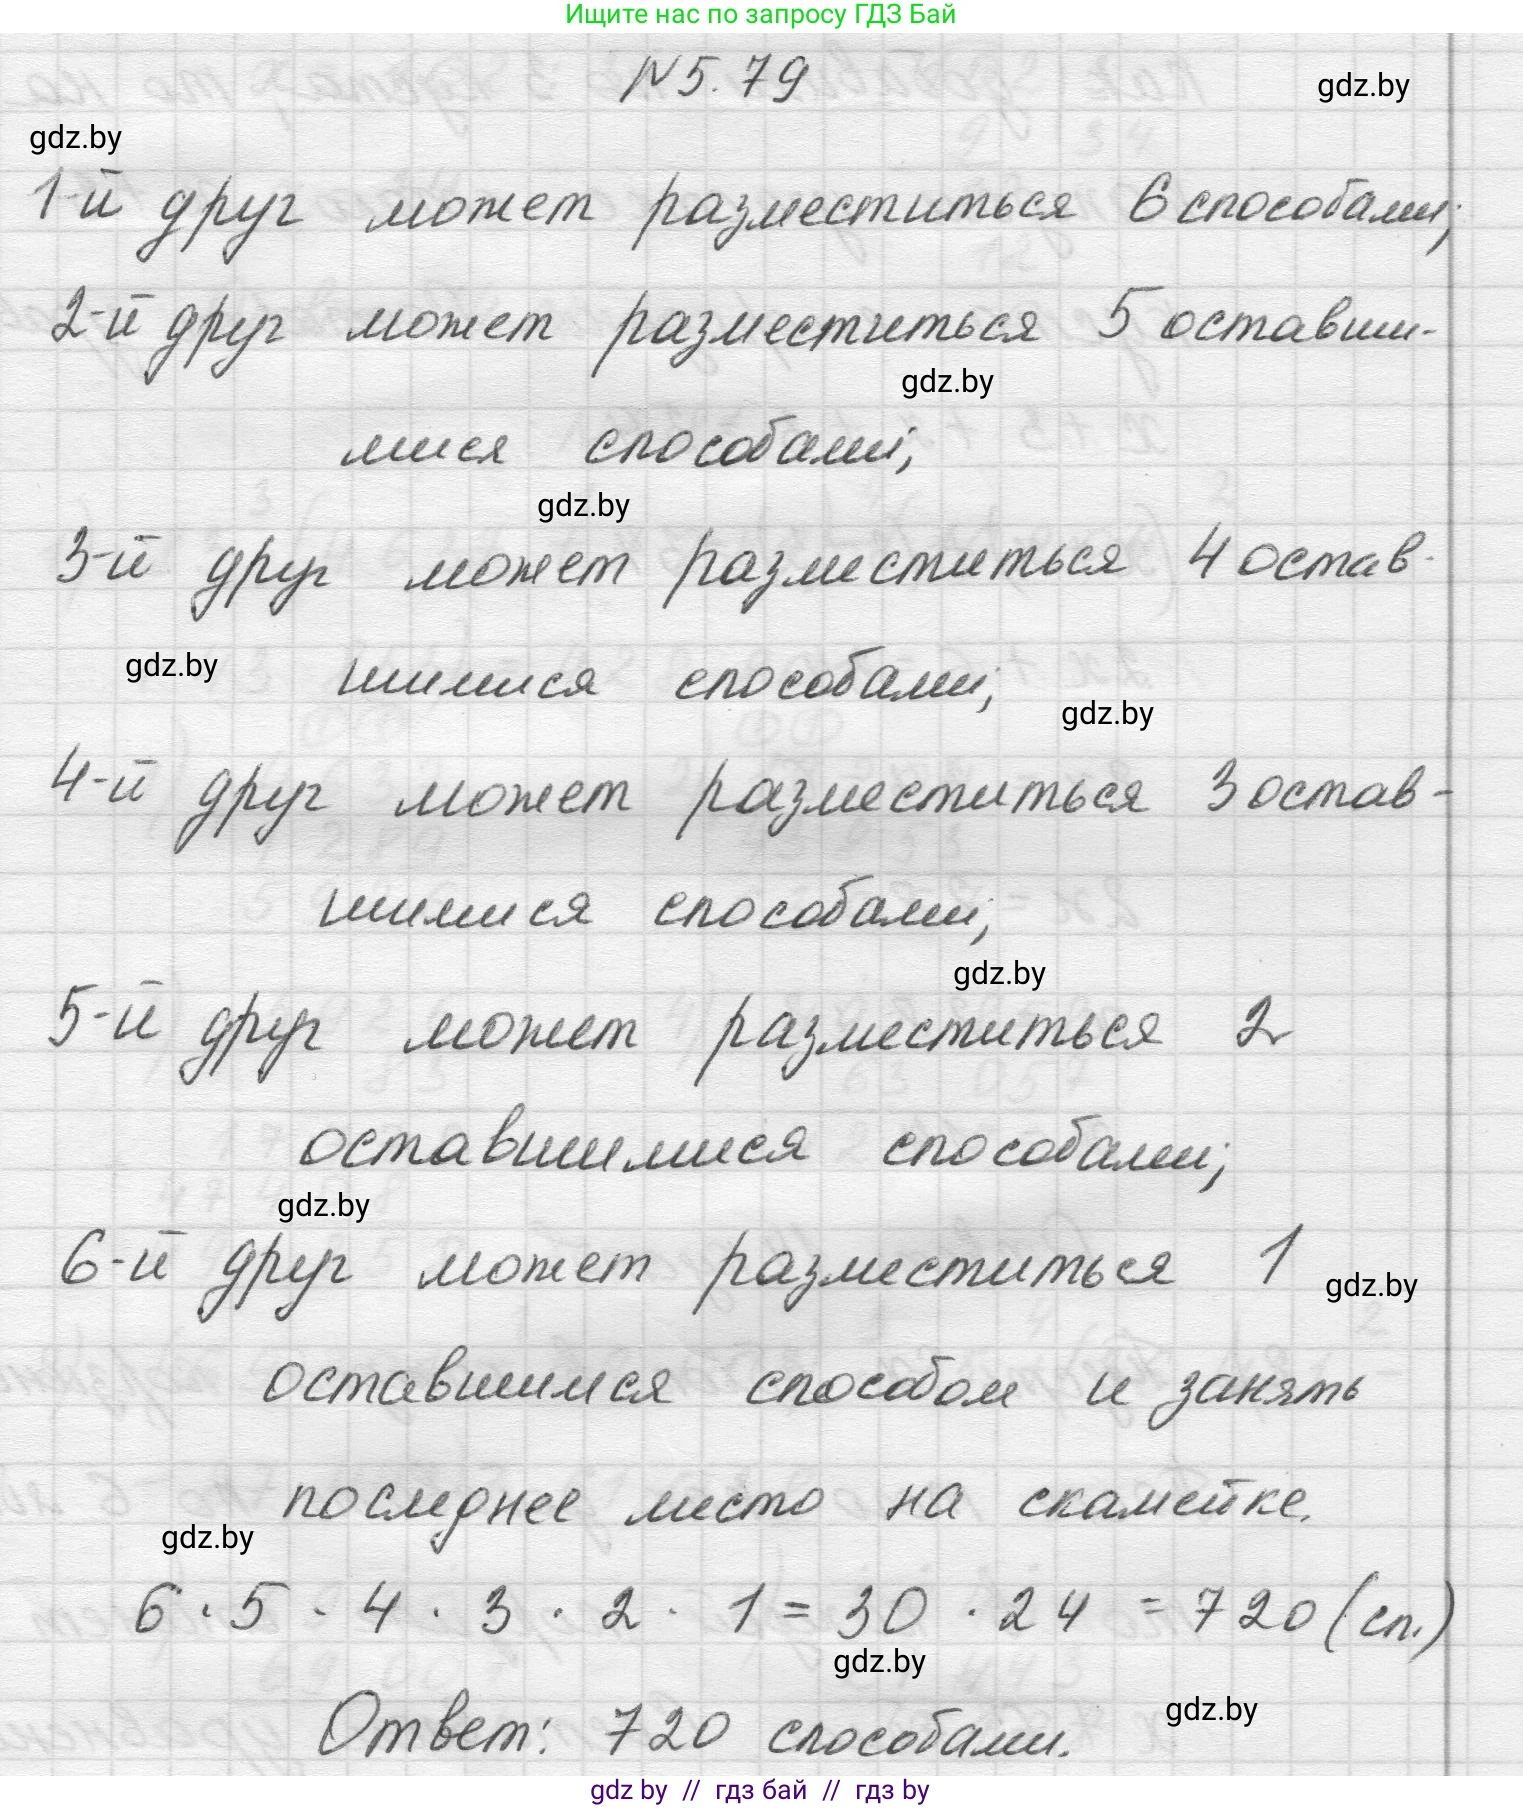 Ищите нас по запросу ГДЗ Бай
№5.79
gdz.by
gdz.by
1-й друг может разместиться 6 способами;
2-й друг может разместиться 5 оставши-
gdz.by
мися способами;
gdz.by
3-й друг может разместиться 4 остав-
gdz.by
шимися способами;
gdz.by
4-й друг может разместиться 3 остав-
шимися способами;
gdz.by
5-й друг может разместиться 2
оставшимися способами;
gdz.by
6-й друг может разместиться 1
gdz.by
оставшимся способом и занять
последнее место на скамейке.
gdz.by
6 · 5 · 4 · 3 · 2 · 1 = 30 · 24 = 720 (сп.)
gdz.by
Ответ: 720 способами.
gdz.by
gdz by // гдз бай // гдз by